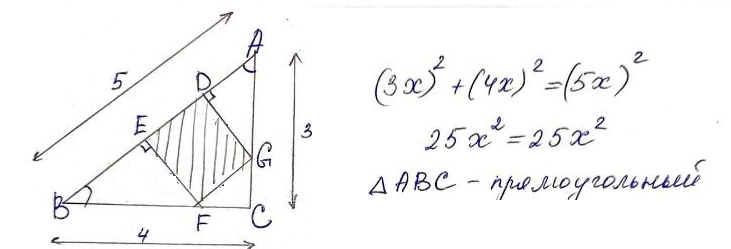 5
A
D
E
3
G
B
F
C
4
(3x)² + (4x)² = (5x)²
25x² = 25x²
△ABC – прямоугольный